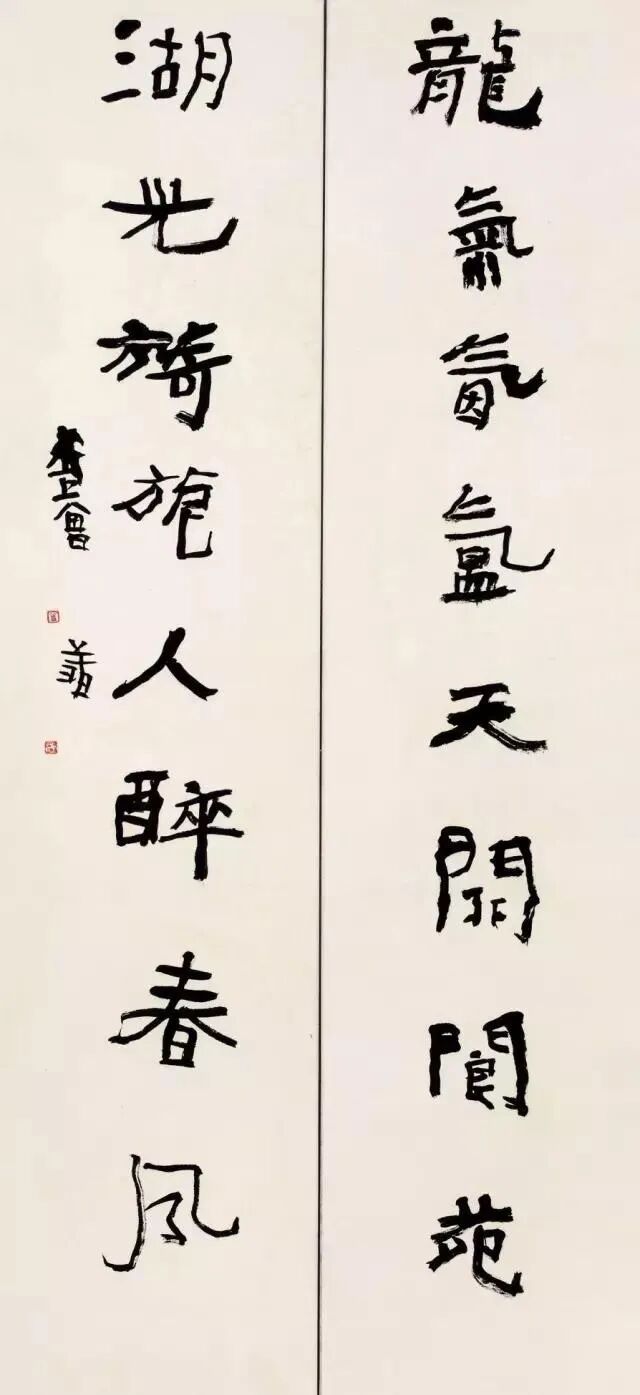 龍氣氤氳天開閬苑
湖光旖旎人醉春風
曾翔